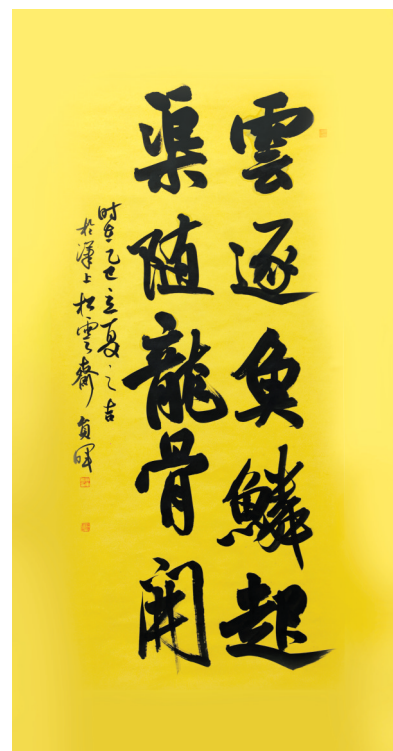 雲逐魚鱗起
渠随龍骨開
时在乙巳立夏之吉
於漢上松雲齋 貞暉